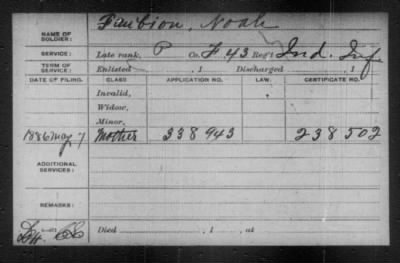 NAME OF SOLDIER: Faubion, Noah
SERVICE: Late rank, P Co. F. 43 Reg't Ind. Inf
TERM OF SERVICE: Enlisted , 1 Discharged , 1
DATE OF FILING. CLASS. APPLICATION NO. LAW. CERTIFICATE NO.
Invalid,
Widow,
Minor,
1886 May 7 Mother 338943 238502
ADDITIONAL SERVICES:
REMARKS:
Died , 1 , at